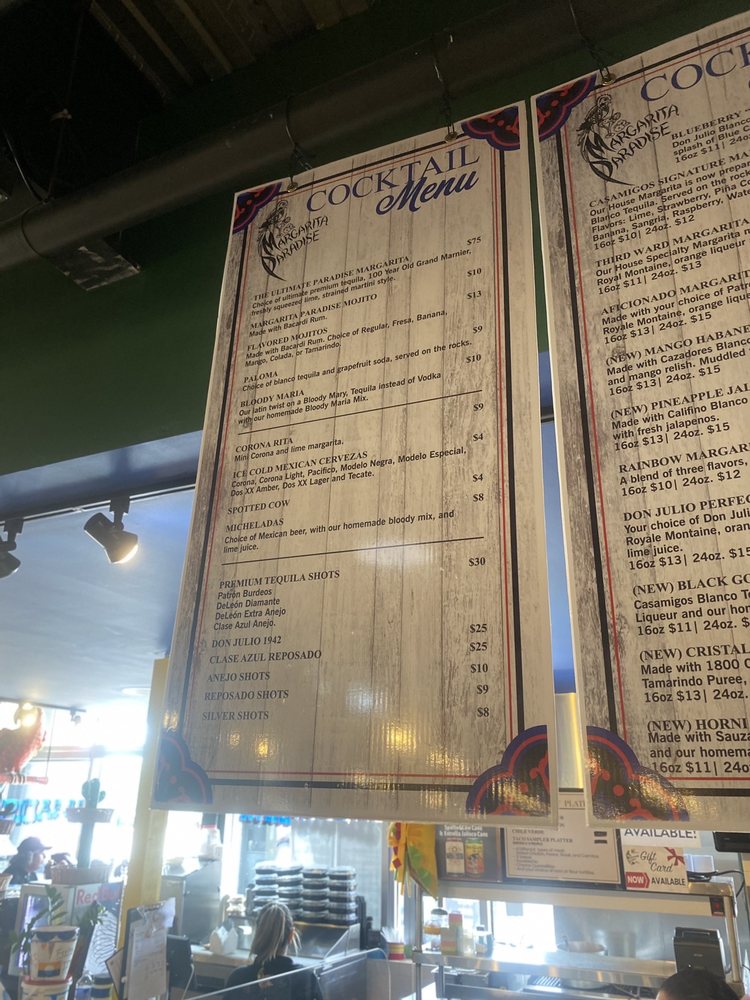 COCKTAIL
Menu
MARGARITA
PARADISE
THE ULTIMATE PARADISE MARGARITA $75
Choice of ultimate premium tequila, 100 Year Old Grand Marnier,
freshly squeezed lime, strained martini style.
MARGARITA PARADISE MOJITO $10
Made with Bacardi Rum.
FLAVORED MOJITOS $13
Made with Bacardi Rum. Choice of Regular, Fresa, Banana,
Mango, Colada, or Tamarindo.
PALOMA $9
Choice of blanco tequila and grapefruit soda, served on the rocks.
BLOODY MARIA $10
Our latin twist on a Bloody Mary, Tequila instead of Vodka
with our homemade Bloody Maria Mix.
CORONA RITA $9
Mini Corona and lime margarita.
ICE COLD MEXICAN CERVEZAS $4
Corona, Corona Light, Pacifico, Modelo Negra, Modelo Especial,
Dos XX Amber, Dos XX Lager and Tecate.
SPOTTED COW $4
MICHELADAS $8
Choice of Mexican beer, with our homemade bloody mix, and
lime juice.
PREMIUM TEQUILA SHOTS $30
Patrón Burdeos
DeLeón Diamante
DeLeón Extra Añejo
Clase Azul Anejo.
DON JULIO 1942 $25
CLASE AZUL REPOSADO $25
ANEJO SHOTS $10
REPOSADO SHOTS $9
SILVER SHOTS $8
MARGARITA
PARADISE
BLUEBERRY
Don Julio Blanco
splash of Blue
16oz $11| 24oz
CASAMIGOS SIGNATURE
Our House Margarita is now
Blanco Tequila. Served on the
Flavors: Lime, Strawberry, Piña
Banana, Sangria, Raspberry,
16oz $10| 24oz. $12
THIRD WARD MARGARIT
Our House Specialty Margarita
Royal Montaine, orange liqueur
16oz $11| 24oz. $13
AFICIONADO MARGARI
Made with your choice of
Royale Montaine, orange
16oz $13| 24oz. $15
(NEW) MANGO
Made with Cazadores
and mango relish. Muddled
16oz $13| 24oz. $15
(NEW) PINEAPPLE
Made with Califino Blanco
with fresh jalapenos.
16oz $13| 24oz. $15
RAINBOW MARGARI
A blend of three flavors,
16oz $10| 24oz. $12
DON JULIO
Your choice of Don
Royale Montaine,
lime juice.
16oz $13| 24oz. $15
(NEW) BLACK
Casamigos Blanco
Liqueur and our
16oz $11| 24oz.
(NEW) CRISTAL
Made with 1800
Tamarindo Puree,
16oz $13| 24oz.
(NEW)
Made with
and our
16oz $11| 24oz
CHILE VERDE
TACO SAMPLER PLATTER
AVAILABLE!
Gift
Card
NOW AVAILABLE